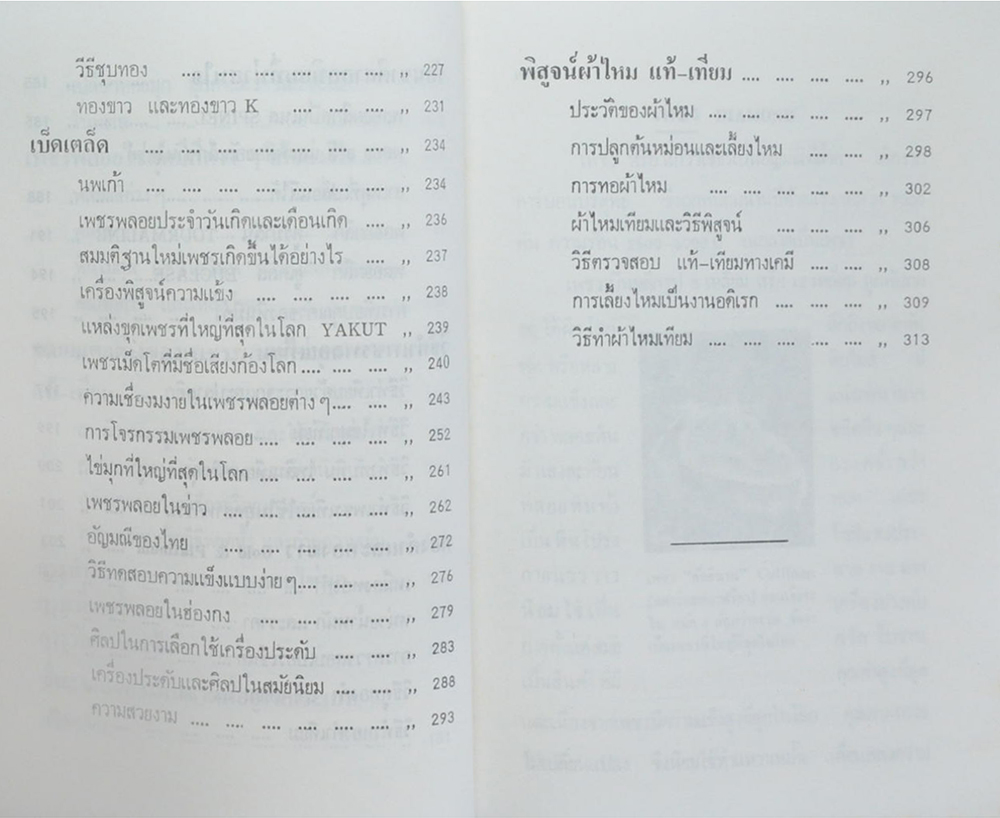 วิธีชุบทอง .... .... .... .... .... .... ,, 227
ทองขาว และทองขาว K .... .... .... ,, 231
เบ็ดเตล็ด .... .... .... .... .... .... .... ,, 234
นพเก้า .... .... .... .... .... .... .... ,, 234
เพชรพลอยประจำวันเกิดและเดือนเกิด .... .... ,, 236
สมมติฐานใหมเพชรเกิดขึ้นได้อย่างไร .... .... ,, 237
เครื่องพิสูจน์ความแข้ง .... .... .... .... ,, 238
แหล่งขุดเพชรที่ใหญ่ที่สุดในโลก YAKUT ,, 239
เพ็ชรเม็ดโตที่มีชื่อเสียงก้องโลก .... .... .... ,, 240
ความเชี่ยงมงายในเพชรพลอยต่าง ๆ.... .... ,, 243
การโจรกรรมเพชรพลอย .... .... .... .... ,, 252
ไข่มุกที่ใหญ่ที่สุดในโลก .... .... .... .... ,, 261
เพชรพลอยในข่าว .... .... .... .... .... ,, 262
อัญมณีของไทย .... .... .... .... .... ,, 272
วิธีทดสอบความแข็งแบบง่าย ๆ.... .... .... ,, 276
เพชรพลอยในฮ่องกง .... .... .... .... ,, 279
ศิลปในการเลือกใช้เครื่องประดับ .... .... .... ,, 283
เครื่องประดับและศิลปในสมัยนิยม .... .... .... ,, 288
ความสวยงาม .... .... .... .... .... .... ,, 293
พิสูจน์ผ้าไหม แท้-เทียม .... .... .... .... ,, 296
ประวัติของผ้าไหม .... .... .... .... .... ,, 297
การปลูกต้นหม่อนและเลี้ยงไหม .... .... ,, 298
การทอผ้าไหม .... .... .... .... .... ,, 302
ผ้าไหมเทียมและวิธีพิสูจน์ .... .... .... ,, 306
วิธีตรวจสอบ แท้-เทียมทางเคมี .... .... .... ,, 308
การเลี้ยงไหมเป็นงานอดิเรก .... .... .... ,, 309
วิธีทำผ้าไหมเทียม .... .... .... .... .... ,, 313